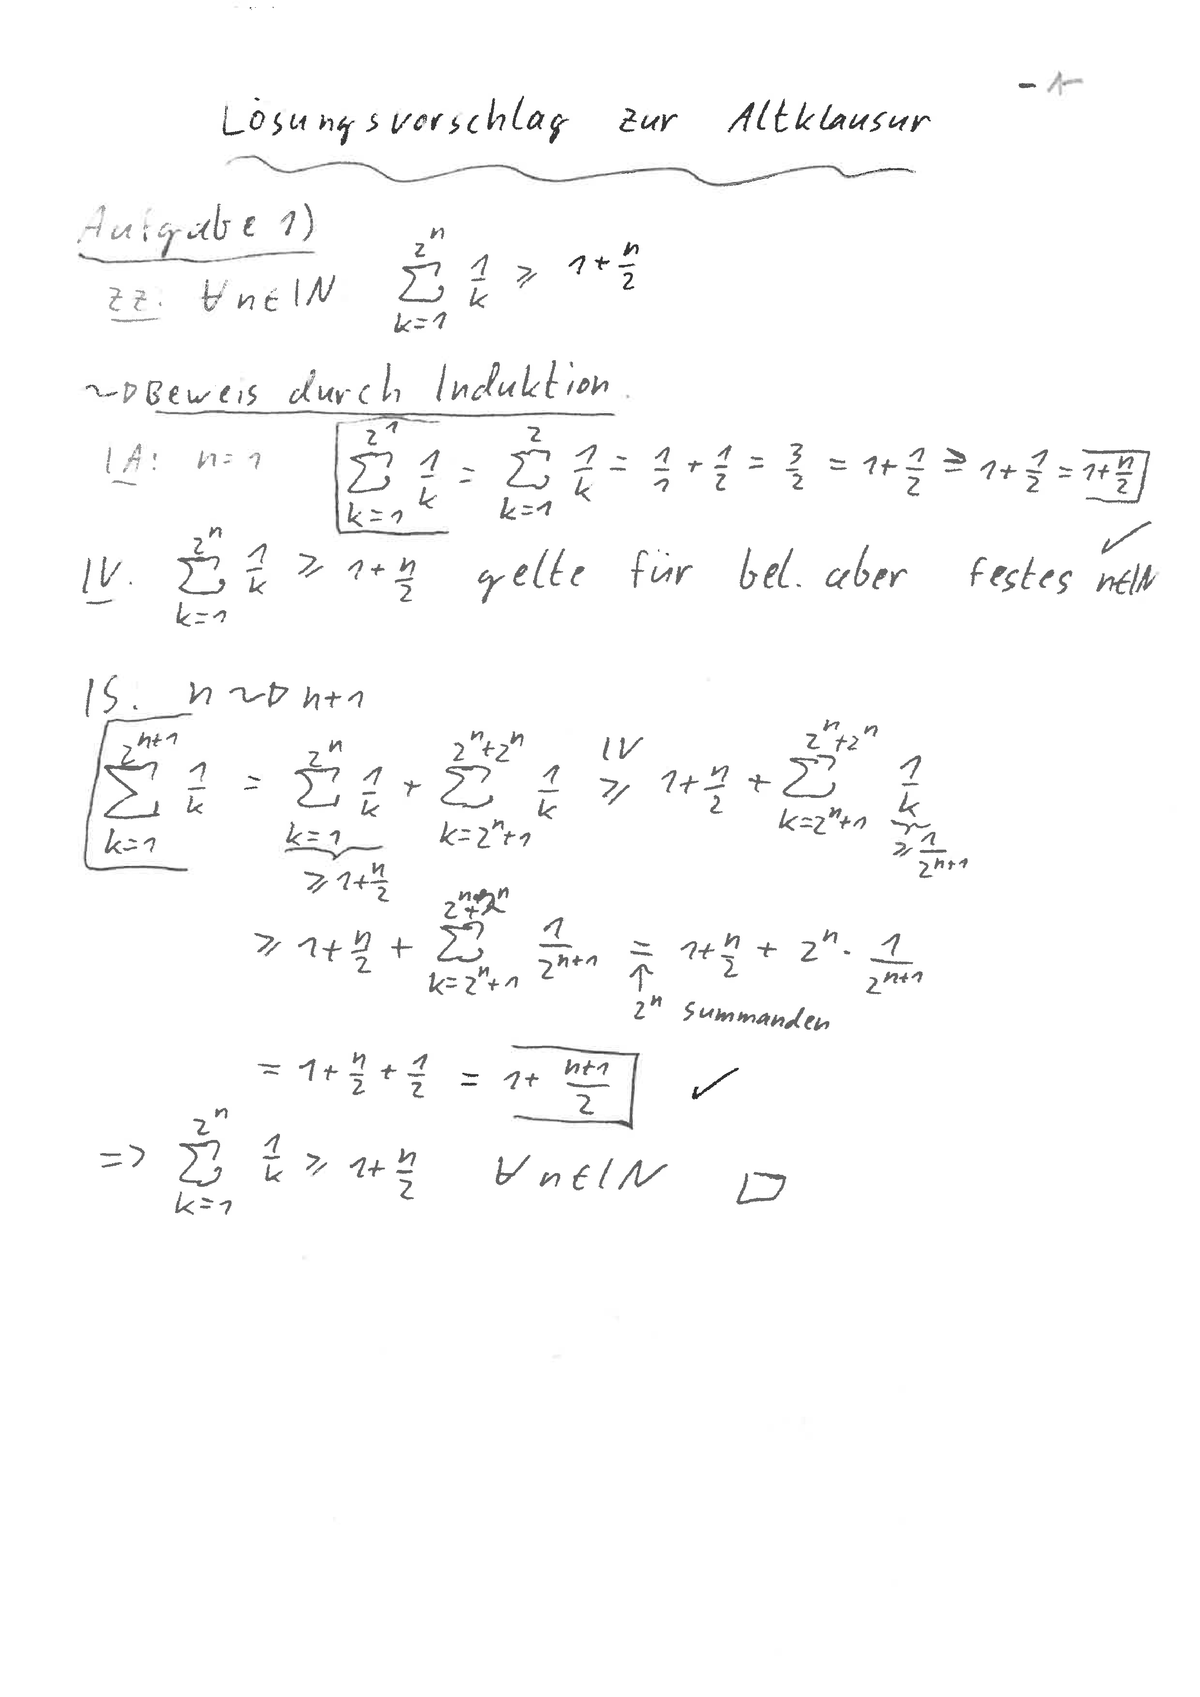 - 1 -
Lösungsvorschlag zur Altklausur
Aufgabe 1)
zz: ∀ n∈ℕ ∑_{k=1}^{2^n} 1/k ≥ 1+n/2
~▷ Beweis durch Induktion.
IA: n=1 ∑_{k=1}^{2^1} 1/k = ∑_{k=1}^{2} 1/k = 1/1 + 1/2 = 3/2 = 1+1/2 ≥ 1+1/2 = 1+n/2 ✓
IV. ∑_{k=1}^{2^n} 1/k ≥ 1+n/2 gelte für bel. aber festes n∈ℕ
IS. n ~▷ n+1
∑_{k=1}^{2^{n+1}} 1/k = ∑_{k=1}^{2^n} 1/k + ∑_{k=2^n+1}^{2^n+2^n} 1/k ≥^{IV} 1+n/2 + ∑_{k=2^n+1}^{2^n+2^n} 1/k
≥ 1+n/2 ≥ 1/2^{n+1}
≥ 1+n/2 + ∑_{k=2^n+1}^{2^n+2^n} 1/2^{n+1} = 1+n/2 + 2^n · 1/2^{n+1}
↑
2^n Summanden
= 1+n/2+1/2 = 1+ (n+1)/2 ✓
=> ∑_{k=1}^{2^n} 1/k ≥ 1+n/2 ∀ n∈ℕ □